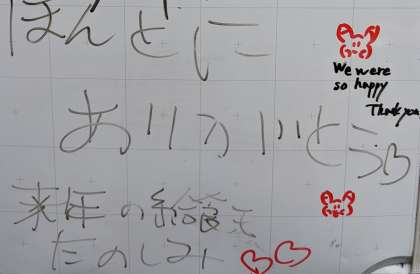 ほんとに
ありがとうう
We were
so happy
Thank you
来年の絵も
たのしみ